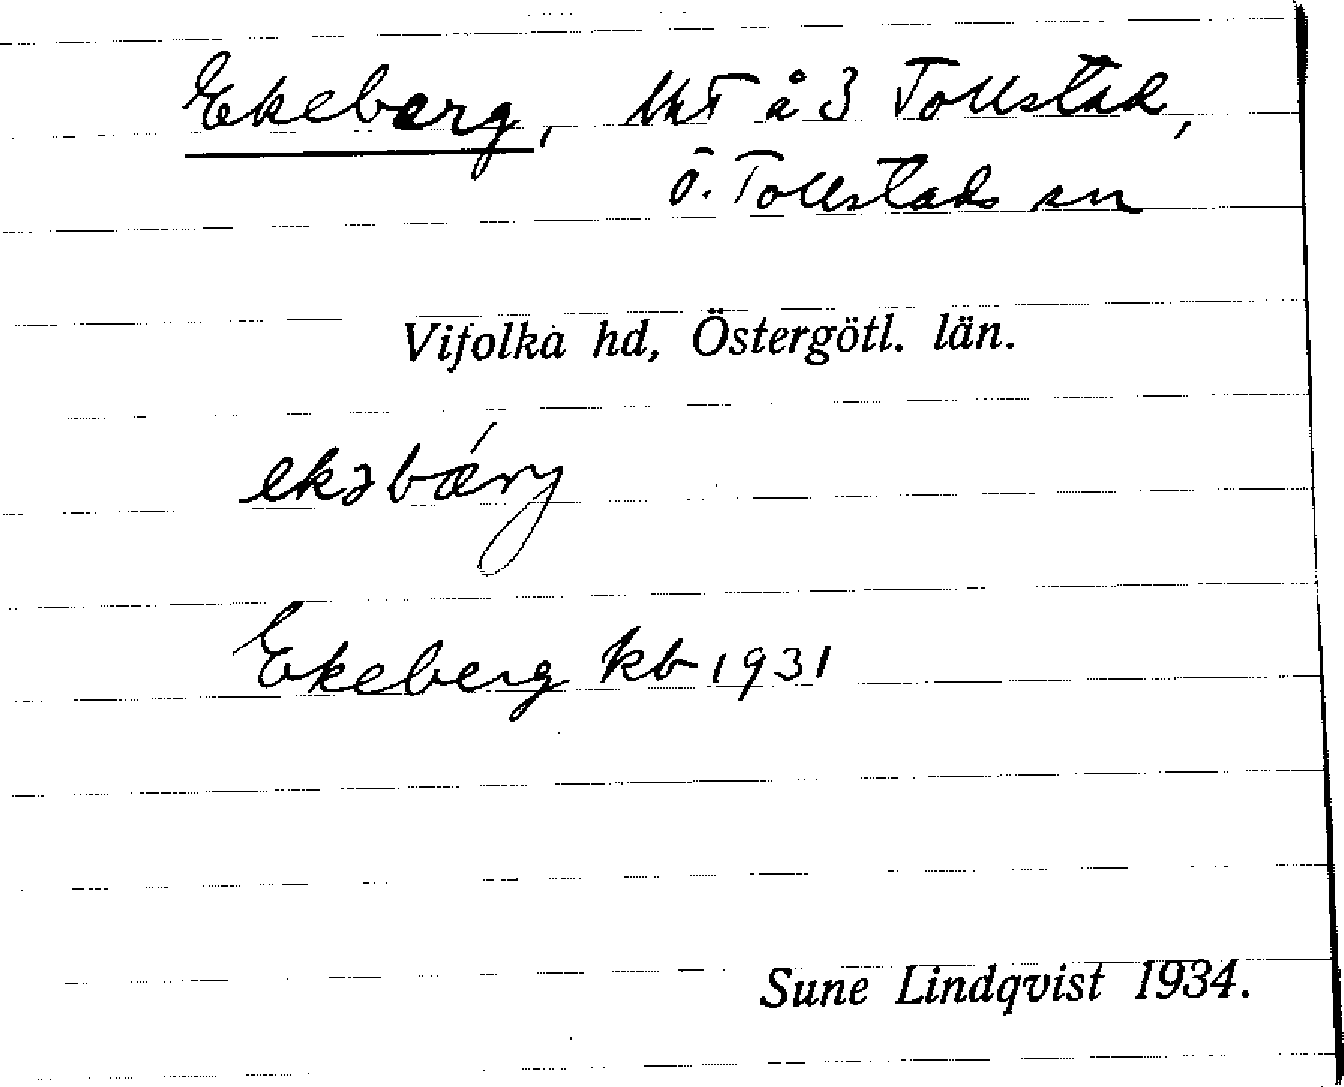 Ekeberg, lht å 3 Tollstad,
Ö. Tollstads sn
Vifolka hd, Östergötl. län.
ekəbǽrj
Ekeberg kb 1931
Sune Lindqvist 1934.